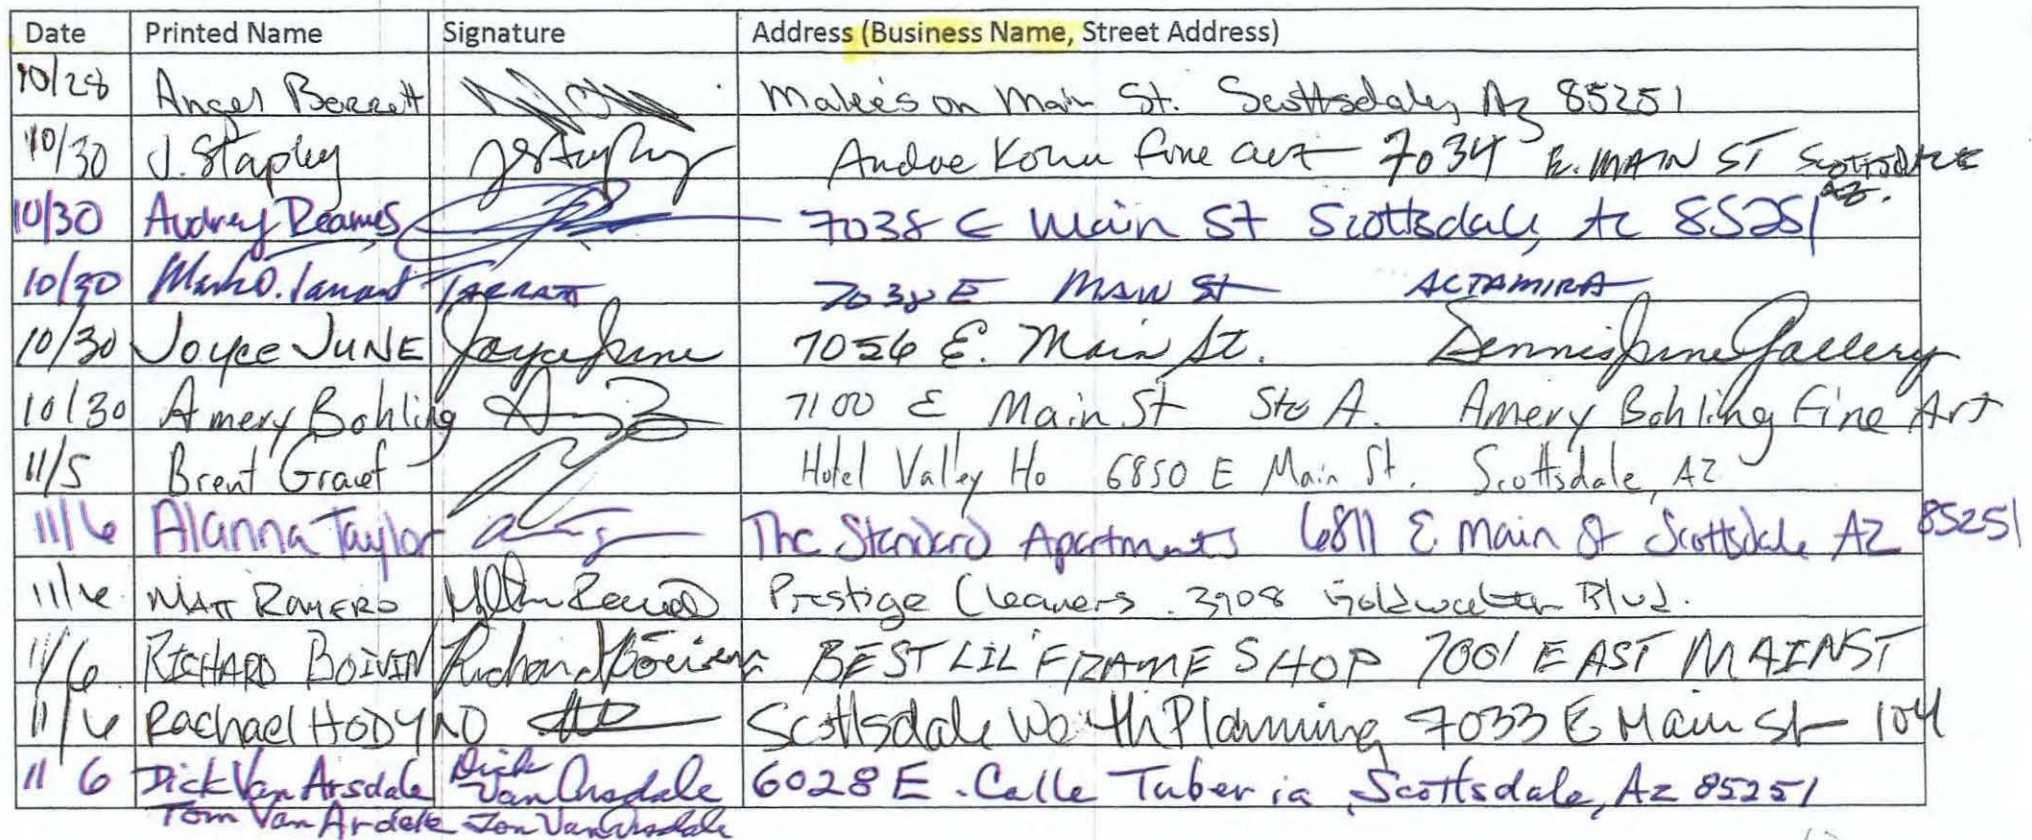 Date Printed Name Signature Address (Business Name, Street Address)
10/28 Angel Berrett Malee's on Main St. Scottsdale, Az 85251
10/30 J. Stapley JStapley Andre Kohn Fine Art 7034 E. MAIN ST Scottsdale AZ.
10/30 Audrey Reames 7038 E Main St Scottsdale, Az 85251
10/30 Mark D. Tarrant TARRANT 7038 E MAIN St ALTAMIRA
10/30 Joyce JUNE Joyce June 7056 E. Main St. Dennis June Gallery
10/30 Amery Bohling 7100 E Main St Ste A. Amery Bohling Fine Art
11/5 Brent Graef Hotel Valley Ho 6850 E Main St. Scottsdale, AZ
11/6 Alanna Taylor The Standard Apartments 6811 E Main St Scottsdale AZ 85251
11/6 MATT ROMERO Prestige Cleaners. 3908 Goldwater Blvd.
11/6 RICHARD BOIVIN Richard Boivin BEST LIL' FRAME SHOP 7001 EAST MAIN ST
11/6 Rachael HODYNO Scottsdale Wealth Planning 7033 E Main St 104
11 6 Dick Van Arsdale Dick Van Arsdale 6028 E. Calle Tuberia, Scottsdale, Az 85251
Tom Van Ardale Tom Van Arsdale